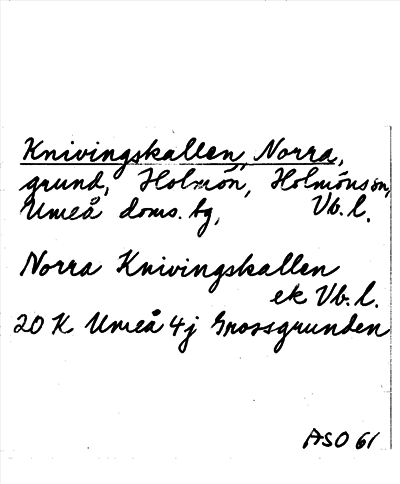 Knivingskallen, Norra,
grund, Holmön, Holmöns sn,
Umeå doms. bg, Vb. l.
Norra Knivingskallen
ek Vb. l.
20 K Umeå 4j Grossgrunden
ASO 61